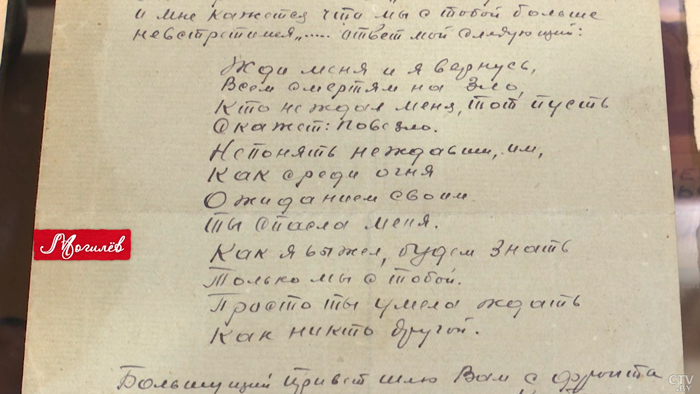 и мне кажется, что мы с тобой больше
невстретимся"..... ответ мой следующий:
Жди меня и я вернусь,
Всем смертям на зло,
Кто не ждал меня, тот пусть
Скажет: повезло.
Непонять неждавши, им,
Как среди огня
Ожиданием своим
Ты спасла меня.
Как я выжел, будем знать
Только мы с тобой.
Просто ты умела ждать
Как никто другой.
Большущий привет шлю Вам с фронта
Могилёв
CTV.BY